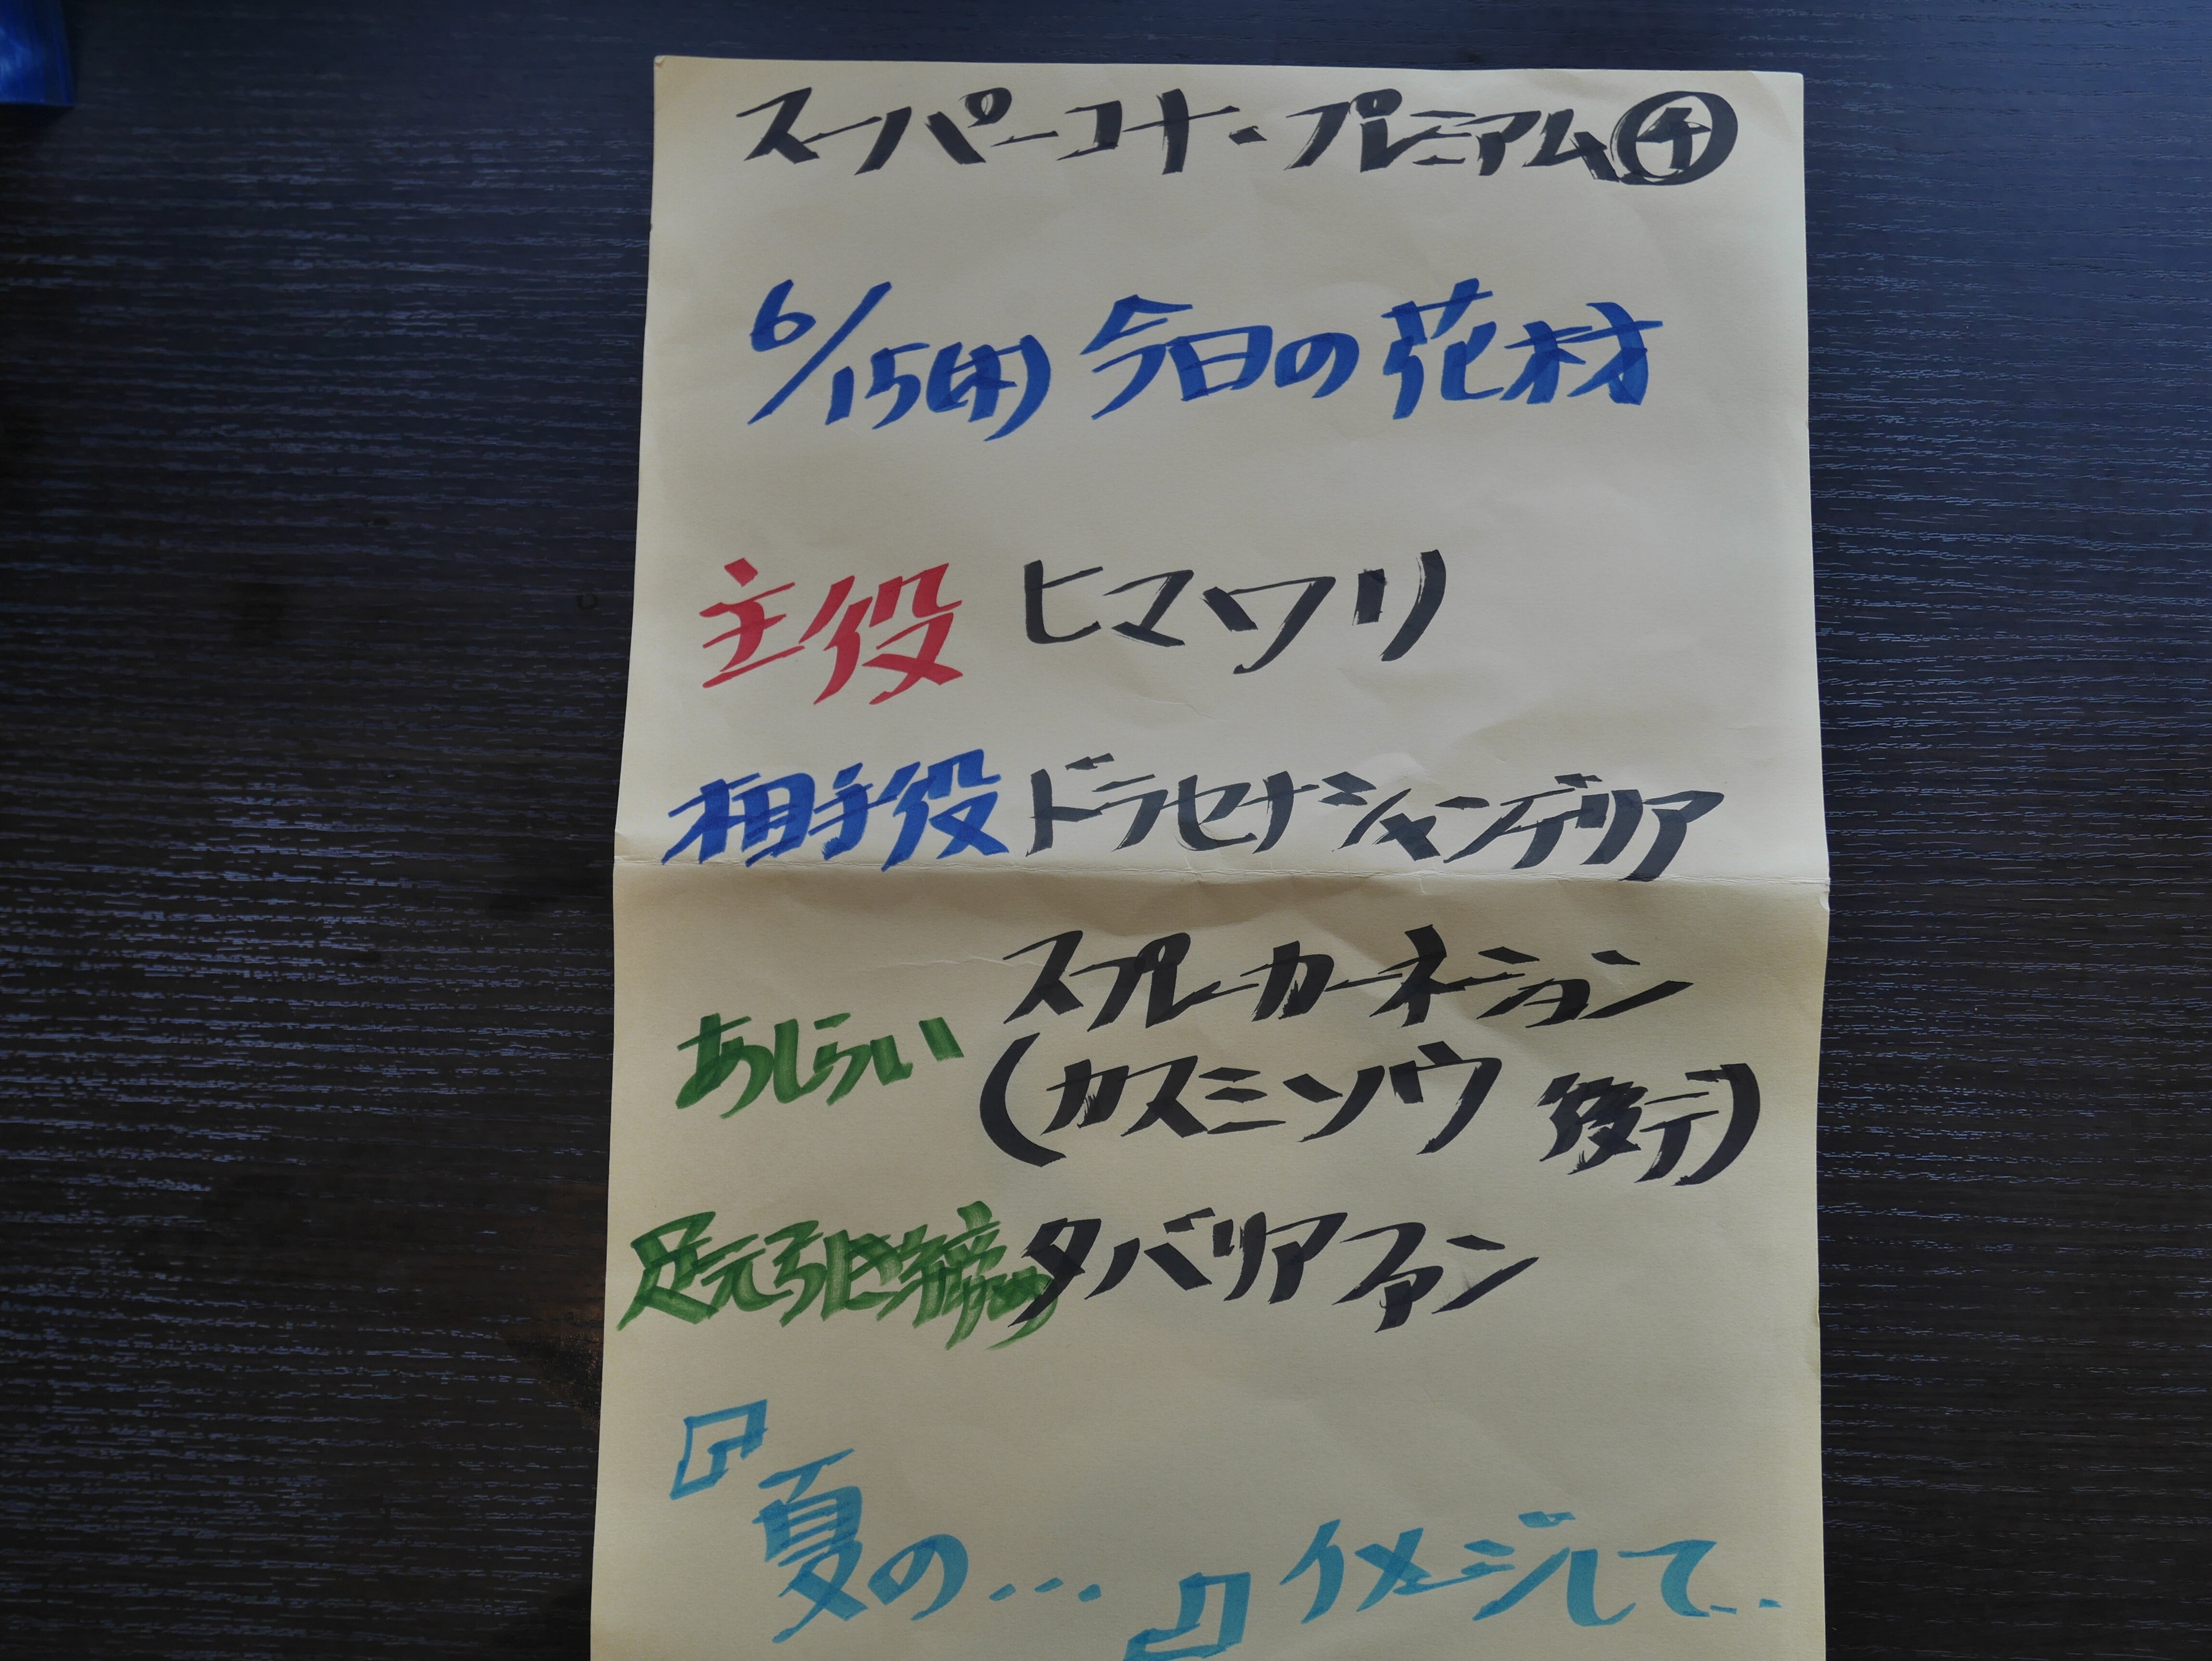 スーパーコナ・プレミアム㋠
6/15(木) 今日の花材
主役 ヒマワリ
相手役 ドラセナジャンデリア
あしらい スプレーカーネーション
(カスミソウ 後デ)
足元引き締め タバリアファン
『夏の...』イメージして..